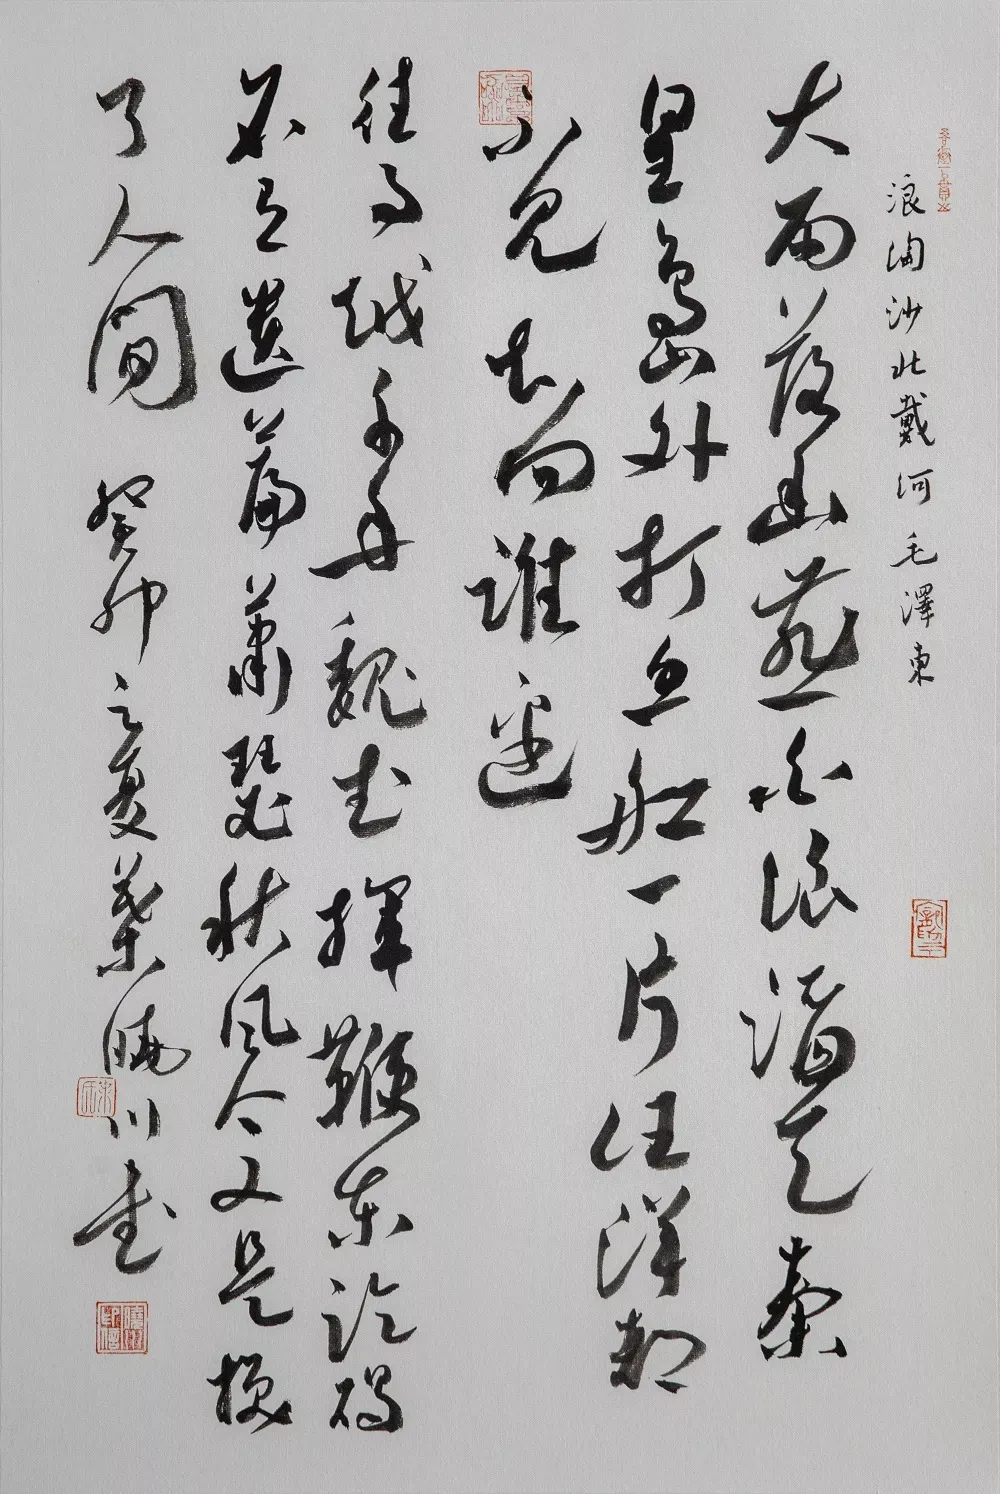 浪淘沙北戴河毛澤東
大雨落幽燕白浪滔天秦
皇島外打魚船一片汪洋都
不見知向誰邊
往事越千年魏武揮鞭東臨碣
石有遺篇蕭瑟秋風今又是換
了人間 癸卯之夏葉曉川書